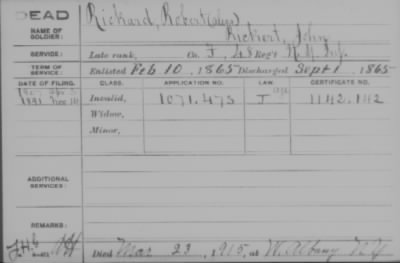 DEAD
NAME OF SOLDIER: Rickard, Robert (alias)
Rickert, John
SERVICE: Late rank, Co. F, 48 Reg't N.Y. Inf.
TERM OF SERVICE: Enlisted Feb 10, 1865 Discharged Sept 1, 1865
DATE OF FILING. CLASS. APPLICATION NO. LAW. CERTIFICATE NO.
1891 Invalid, 1071.473 J 1142.142
Widow,
Minor,
ADDITIONAL SERVICES:
REMARKS:
Died Mar 23, 1915, at W. Albany N.Y.